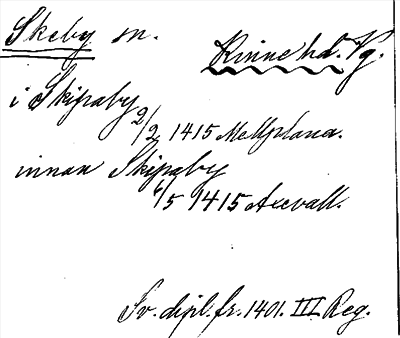 Skeby sn. Kinne hd. Vg.
i Skipaby
2/2 1415 Mellplana.
innan Skipaby
6/5 1415 Axevall.
Sv. dipl. fr. 1401. III Reg.